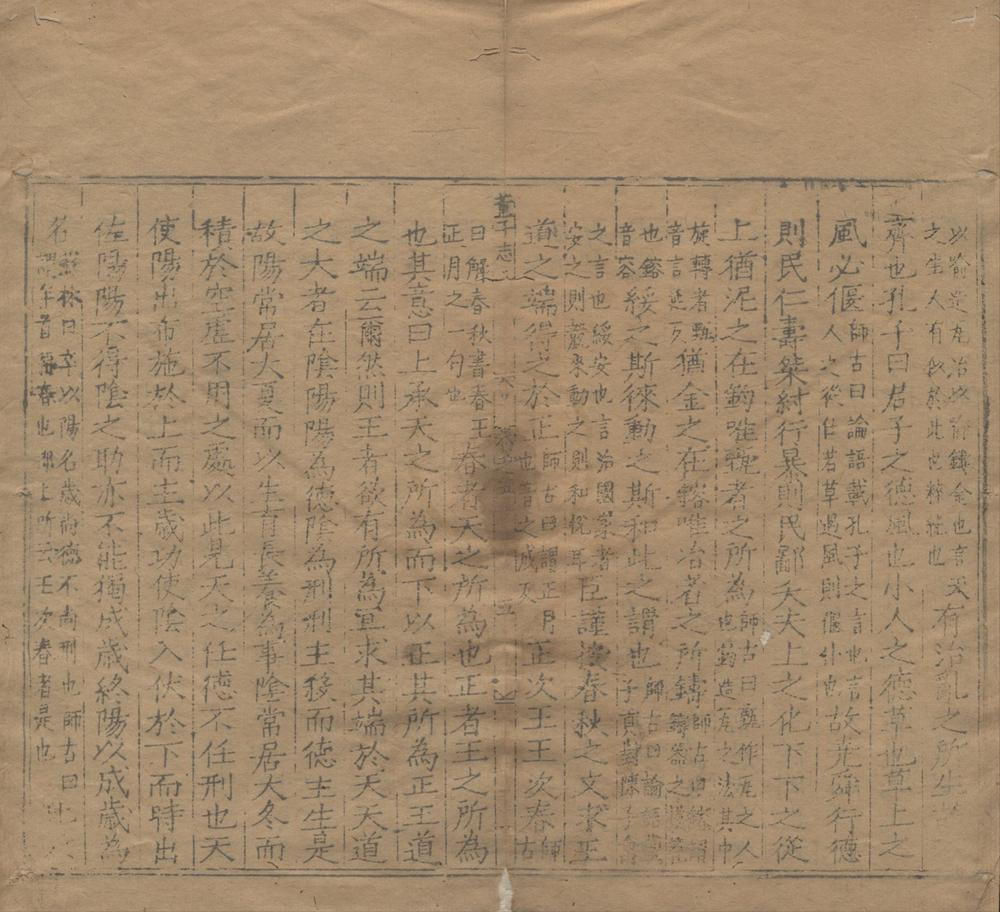 以喻造瓦冶以喻鑄金也言天
之生人有似於此也粹純也
有治亂之所生故
齊也孔子曰君子之德風也小人之德草也草上之
風必偃
師古曰論語載孔子之言也言
人之從化若草遇風則偃仆也
故堯舜行德
則民仁壽桀紂行暴則民鄙夭夫上之化下下之從
上猶泥之在鈞唯甄者之所為
師古曰甄作瓦之人
也鈞造瓦之法其中
旋轉者甄
音吉延反
猶金之在鎔唯冶者之所鑄
師古曰鎔謂
鑄器之模範
也鎔
音容
綏之斯徠動之斯和此之謂也
師古曰論語載
子貢對陳子禽
之言也綏安也言治國家者
安之則競來動之則和悅耳
臣謹按春秋之文求王
道之端得之於正
師古曰謂正月
也音之成反
正次王王次春
師
古
董子志
五
曰解春秋書春王
正月之一句也
春者天之所為也正者王之所為
也其意曰上承天之所為而下以正其所為正王道
之端云爾然則王者欲有所為宜求其端於天天道
之大者在陰陽陽為德陰為刑刑主殺而德主生是
故陽常居大夏而以生育長養為事陰常居大冬而
積於空虛不用之處以此見天之任德不任刑也天
使陽出布施於上而主歲功使陰入伏於下而時出
佐陽陽不得陰之助亦不能獨成歲終陽以成歲為
名
蘇林曰卒以陽名歲尚德不尚刑也師古曰
謂年首稱春也即上所云王次春者是也